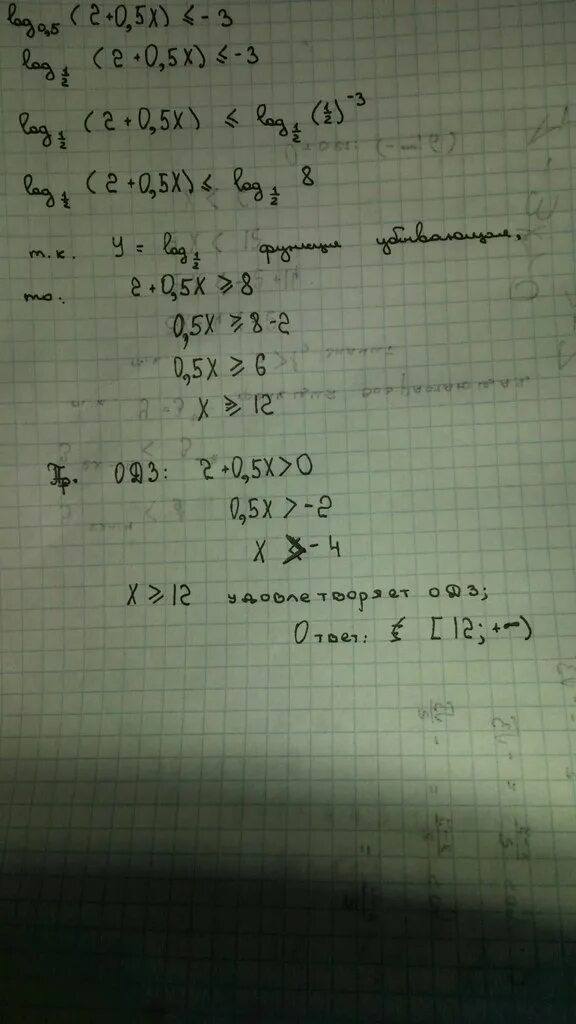 log₀,₅ (2+0,5x) ≤ -3
log_{1/2} (2+0,5x) ≤ -3
log_{1/2} (2+0,5x) ≤ log_{1/2} (1/2)⁻³
log_{1/2} (2+0,5x) ≤ log_{1/2} 8
т.к. y = log_{1/2} функция убывающая,
то. 2+0,5x ≥ 8
0,5x ≥ 8-2
0,5x ≥ 6
x ≥ 12
Пр. ОДЗ: 2+0,5x > 0
0,5x > -2
x > -4
x ≥ 12 удовлетворяет ОДЗ;
Ответ: [12; +∞)